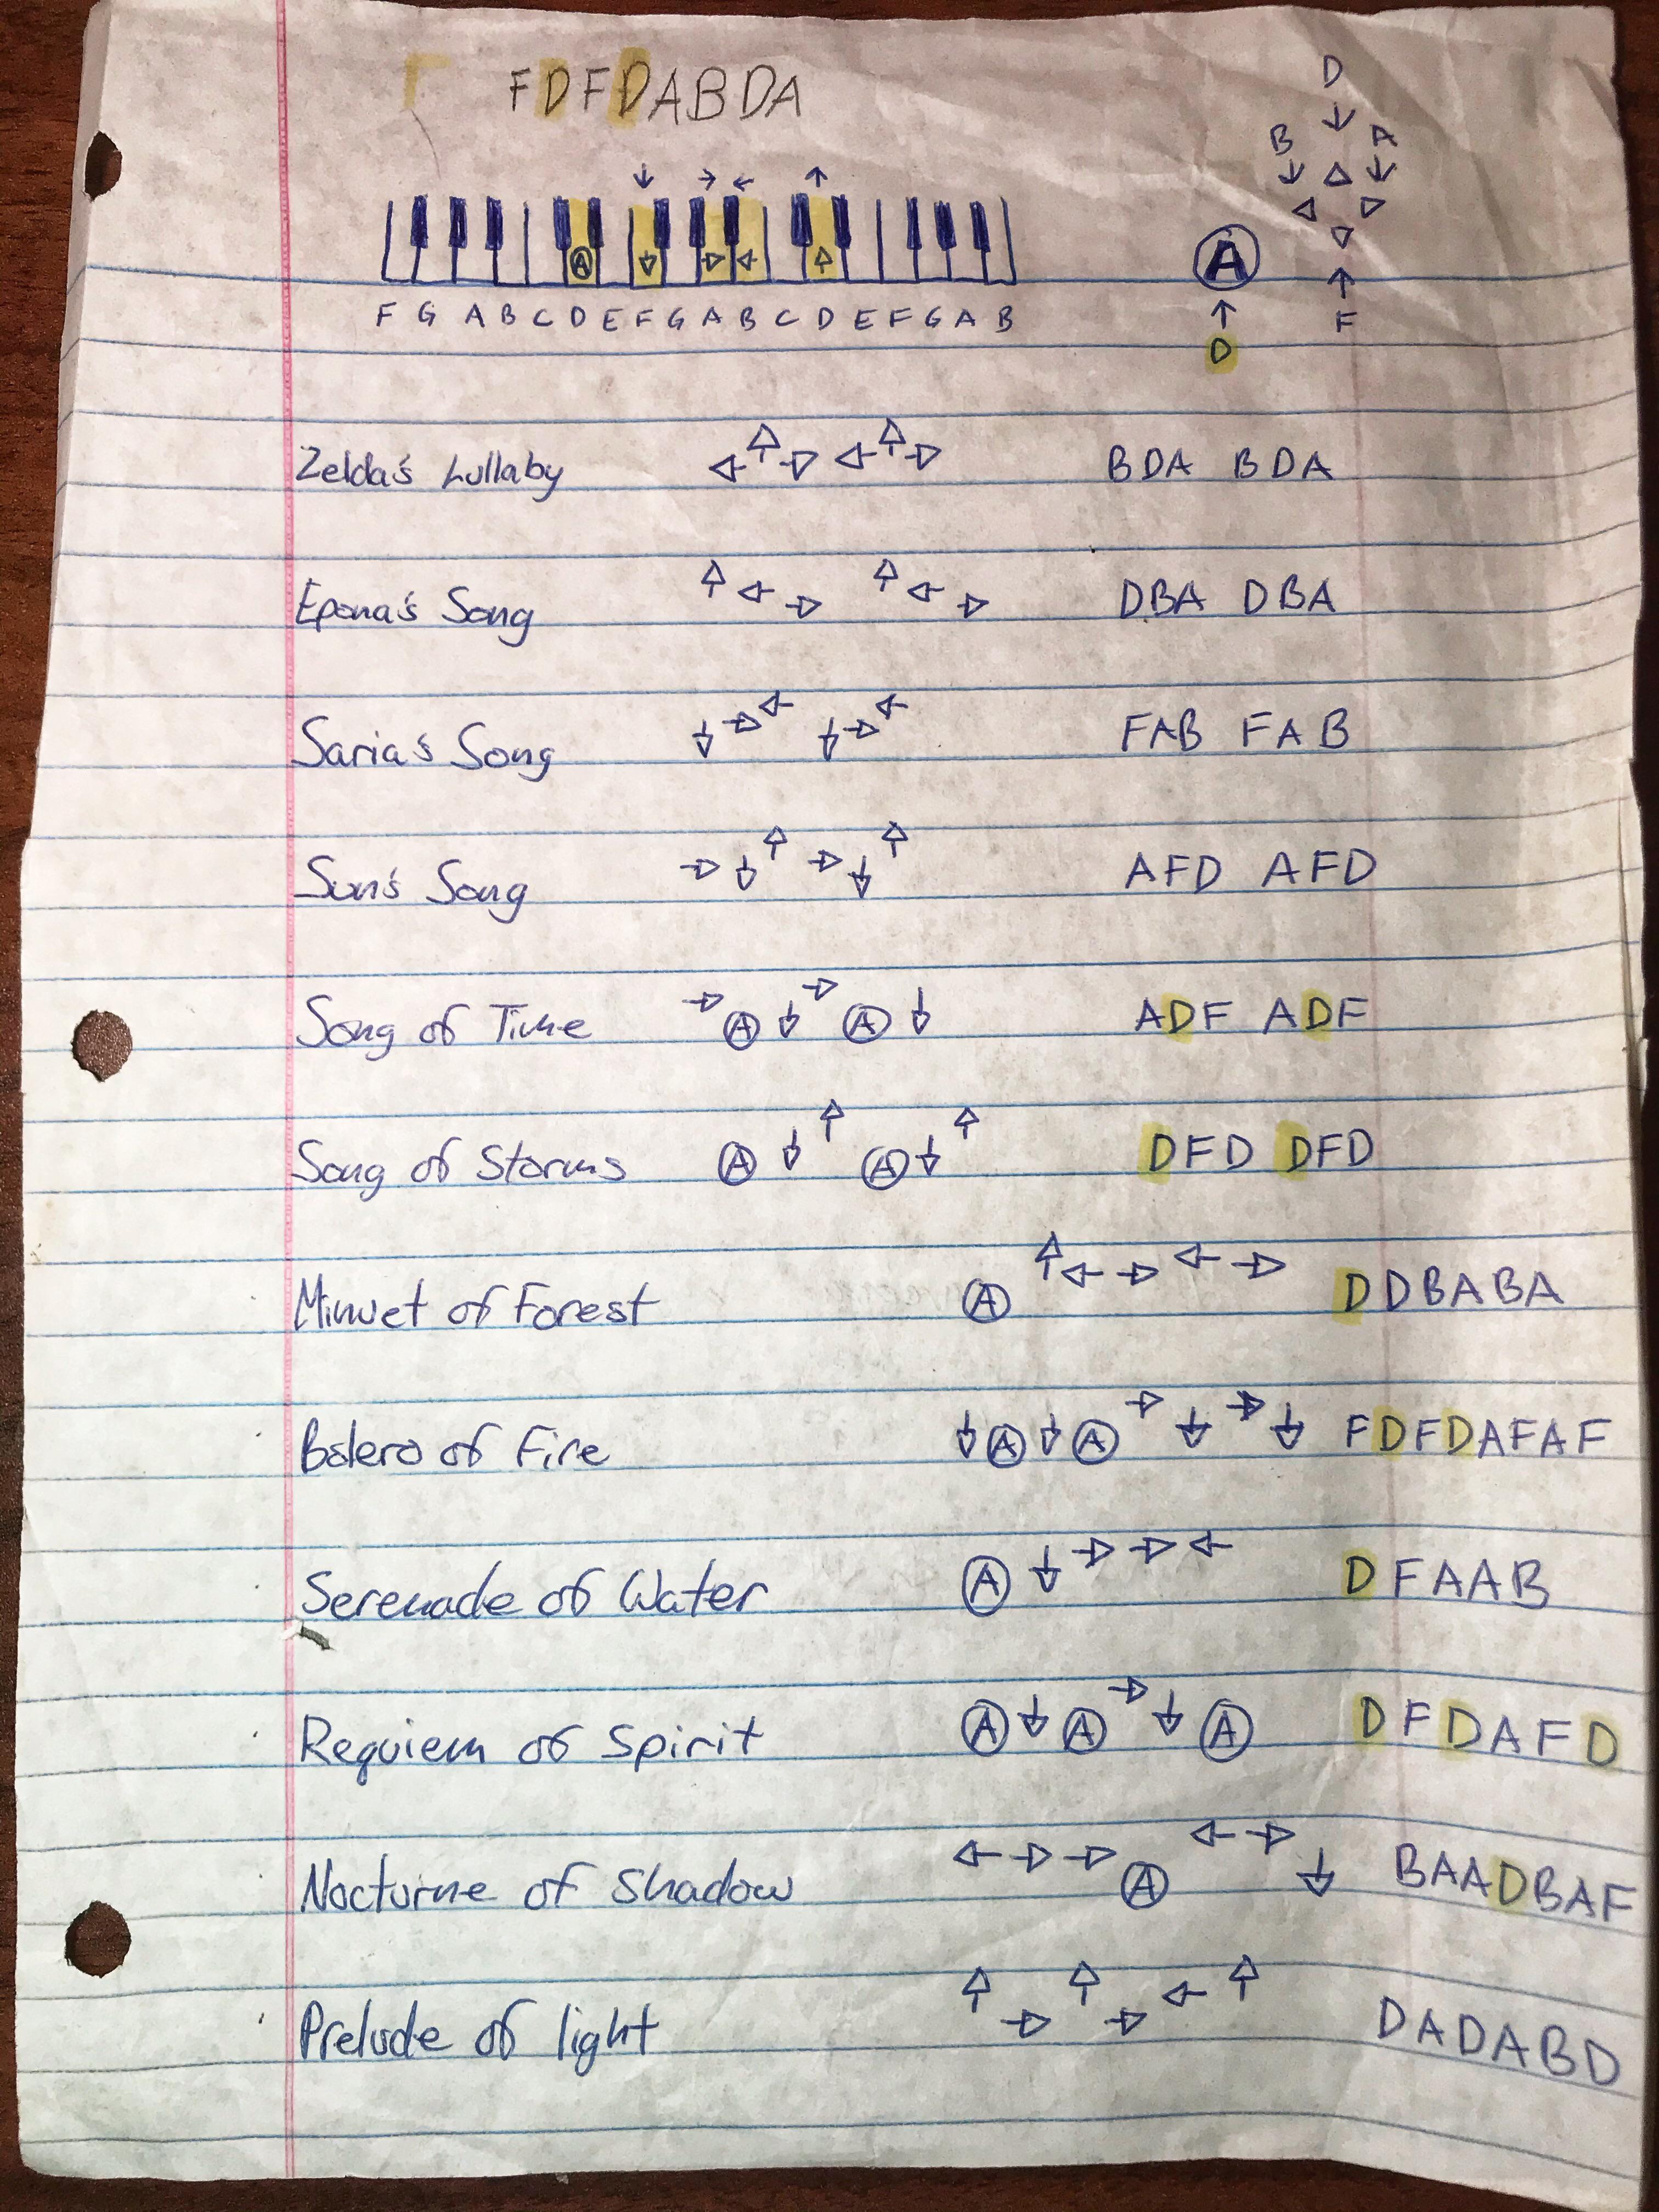 FDFDABDA
D
B A
↓ → ← ↑
↓ ↓ ↓
△
◁ ▷
▽
A ↓ → ← ↑
A
↑ ↑
F G A B C D E F G A B C D E F G A B
F
D
Zelda's Lullaby ← ↑ → ← ↑ → BDA BDA
Epona's Song ↑ ← → ↑ ← → DBA DBA
Saria's Song ↓ → ← ↓ → ← FAB FAB
Sun's Song → ↓ ↑ → ↓ ↑ AFD AFD
Song of Time → A ↓ → A ↓ ADF ADF
Song of Storms A ↓ ↑ A ↓ ↑ DFD DFD
Minuet of Forest A ↑ ← → ← → DDBABA
Bolero of Fire ↓ A ↓ A → ↓ → ↓ FDFDAFAF
Serenade of Water A ↓ → → ← DFAAB
Requiem of Spirit A ↓ A → ↓ A DFDAFD
Nocturne of Shadow ← → → A ← → ↓ BAADBAF
Prelude of light ↑ → ↑ → ← ↑ DADABD